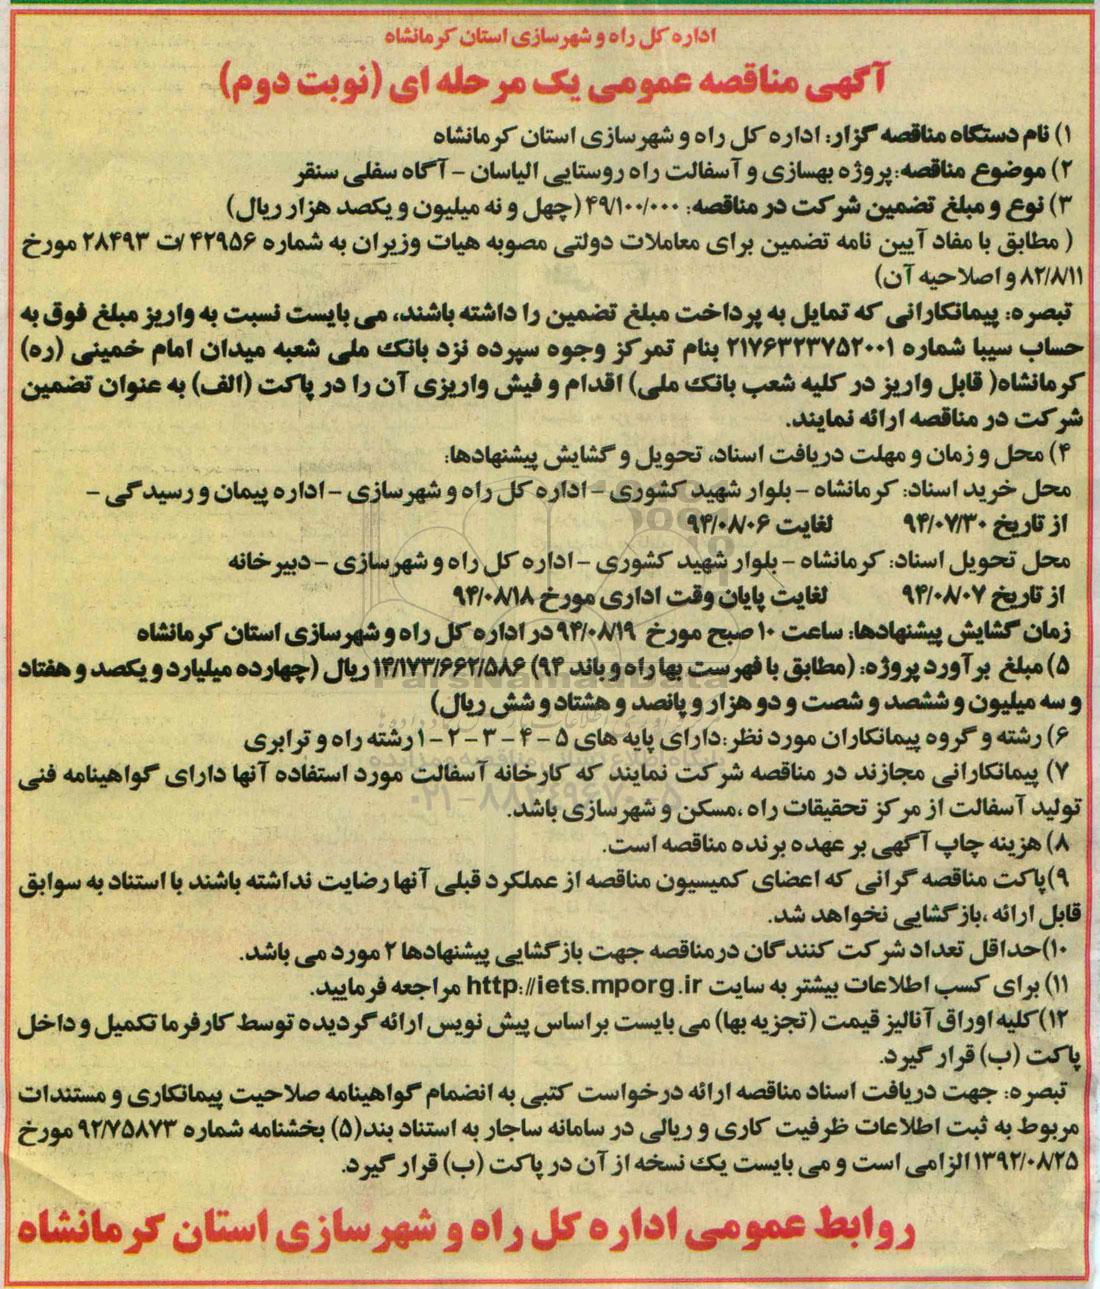 اداره کل راه و شهرسازی استان کرمانشاه
آگهی مناقصه عمومی یک مرحله ای (نوبت دوم)
۱) نام دستگاه مناقصه گزار: اداره کل راه و شهرسازی استان کرمانشاه
۲) موضوع مناقصه: پروژه بهسازی و آسفالت راه روستایی الیاسان - آگاه سفلی سنقر
۳) نوع و مبلغ تضمین شرکت در مناقصه: ۴۹/۱۰۰/۰۰۰ (چهل و نه میلیون و یکصد هزار ریال)
( مطابق با مفاد آیین نامه تضمین برای معاملات دولتی مصوبه هیات وزیران به شماره ۴۲۹۵۶ /ت ۲۸۴۹۳ مورخ
۸۲/۸/۱۱ و اصلاحیه آن)
تبصره: پیمانکارانی که تمایل به پرداخت مبلغ تضمین را داشته باشند، می بایست نسبت به واریز مبلغ فوق به
حساب سیبا شماره ۲۱۷۶۳۲۳۷۵۲۰۰۱ بنام تمرکز وجوه سپرده نزد بانک ملی شعبه میدان امام خمینی (ره)
کرمانشاه( قابل واریز در کلیه شعب بانک ملی) اقدام و فیش واریزی آن را در پاکت (الف) به عنوان تضمین
شرکت در مناقصه ارائه نمایند.
۴) محل و زمان و مهلت دریافت اسناد، تحویل و گشایش پیشنهادها:
محل خرید اسناد: کرمانشاه - بلوار شهید کشوری - اداره کل راه و شهرسازی - اداره پیمان و رسیدگی -
از تاریخ ۹۴/۰۷/۳۰ لغایت ۹۴/۰۸/۰۶
محل تحویل اسناد: کرمانشاه - بلوار شهید کشوری - اداره کل راه و شهرسازی - دبیرخانه
از تاریخ ۹۴/۰۸/۰۷ لغایت پایان وقت اداری مورخ ۹۴/۰۸/۱۸
زمان گشایش پیشنهادها: ساعت ۱۰ صبح مورخ ۹۴/۰۸/۱۹ در اداره کل راه و شهرسازی استان کرمانشاه
۵) مبلغ برآورد پروژه: (مطابق با فهرست بها راه و باند ۹۴) ۱۴/۱۷۳/۶۶۲/۵۸۶ ریال (چهارده میلیارد و یکصد و هفتاد
و سه میلیون و ششصد و شصت و دو هزار و پانصد و هشتاد و شش ریال)
۶) رشته و گروه پیمانکاران مورد نظر: دارای پایه های ۵ - ۴ - ۳ - ۲ - ۱ رشته راه و ترابری
۷) پیمانکارانی مجازند در مناقصه شرکت نمایند که کارخانه آسفالت مورد استفاده آنها دارای گواهینامه فنی
تولید آسفالت از مرکز تحقیقات راه ،مسکن و شهرسازی باشد.
۸) هزینه چاپ آگهی بر عهده برنده مناقصه است.
۹)پاکت مناقصه گرانی که اعضای کمیسیون مناقصه از عملکرد قبلی آنها رضایت نداشته باشند با استناد به سوابق
قابل ارائه ،بازگشایی نخواهد شد.
۱۰)حداقل تعداد شرکت کنندگان درمناقصه جهت بازگشایی پیشنهادها ۲ مورد می باشد.
۱۱) برای کسب اطلاعات بیشتر به سایت http://iets.mporg.ir مراجعه فرمایید.
۱۲)کلیه اوراق آنالیز قیمت (تجزیه بها) می بایست براساس پیش نویس ارائه گردیده توسط کارفرما تکمیل و داخل
پاکت (ب) قرار گیرد.
تبصره: جهت دریافت اسناد مناقصه ارائه درخواست کتبی به انضمام گواهینامه صلاحیت پیمانکاری و مستندات
مربوط به ثبت اطلاعات ظرفیت کاری و ریالی در سامانه ساجار به استناد بند(۵) بخشنامه شماره ۹۲/۷۵۸۷۳ مورخ
۱۳۹۲/۰۸/۲۵ الزامی است و می بایست یک نسخه از آن در پاکت (ب) قرار گیرد.
روابط عمومی اداره کل راه و شهرسازی استان کرمانشاه